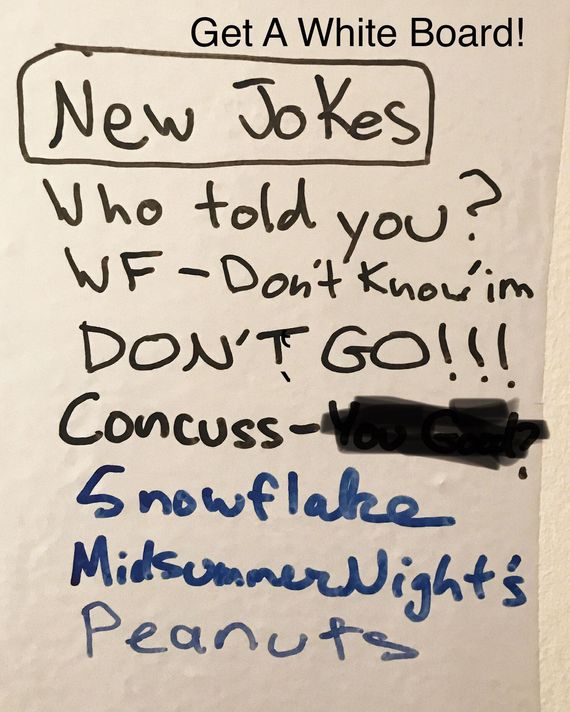 Get A White Board!
New Jokes
Who told you?
WF - Don't Know'im
DON'T GO!!!
Concuss - You Good?
Snowflake
MidsummerNight's
Peanuts